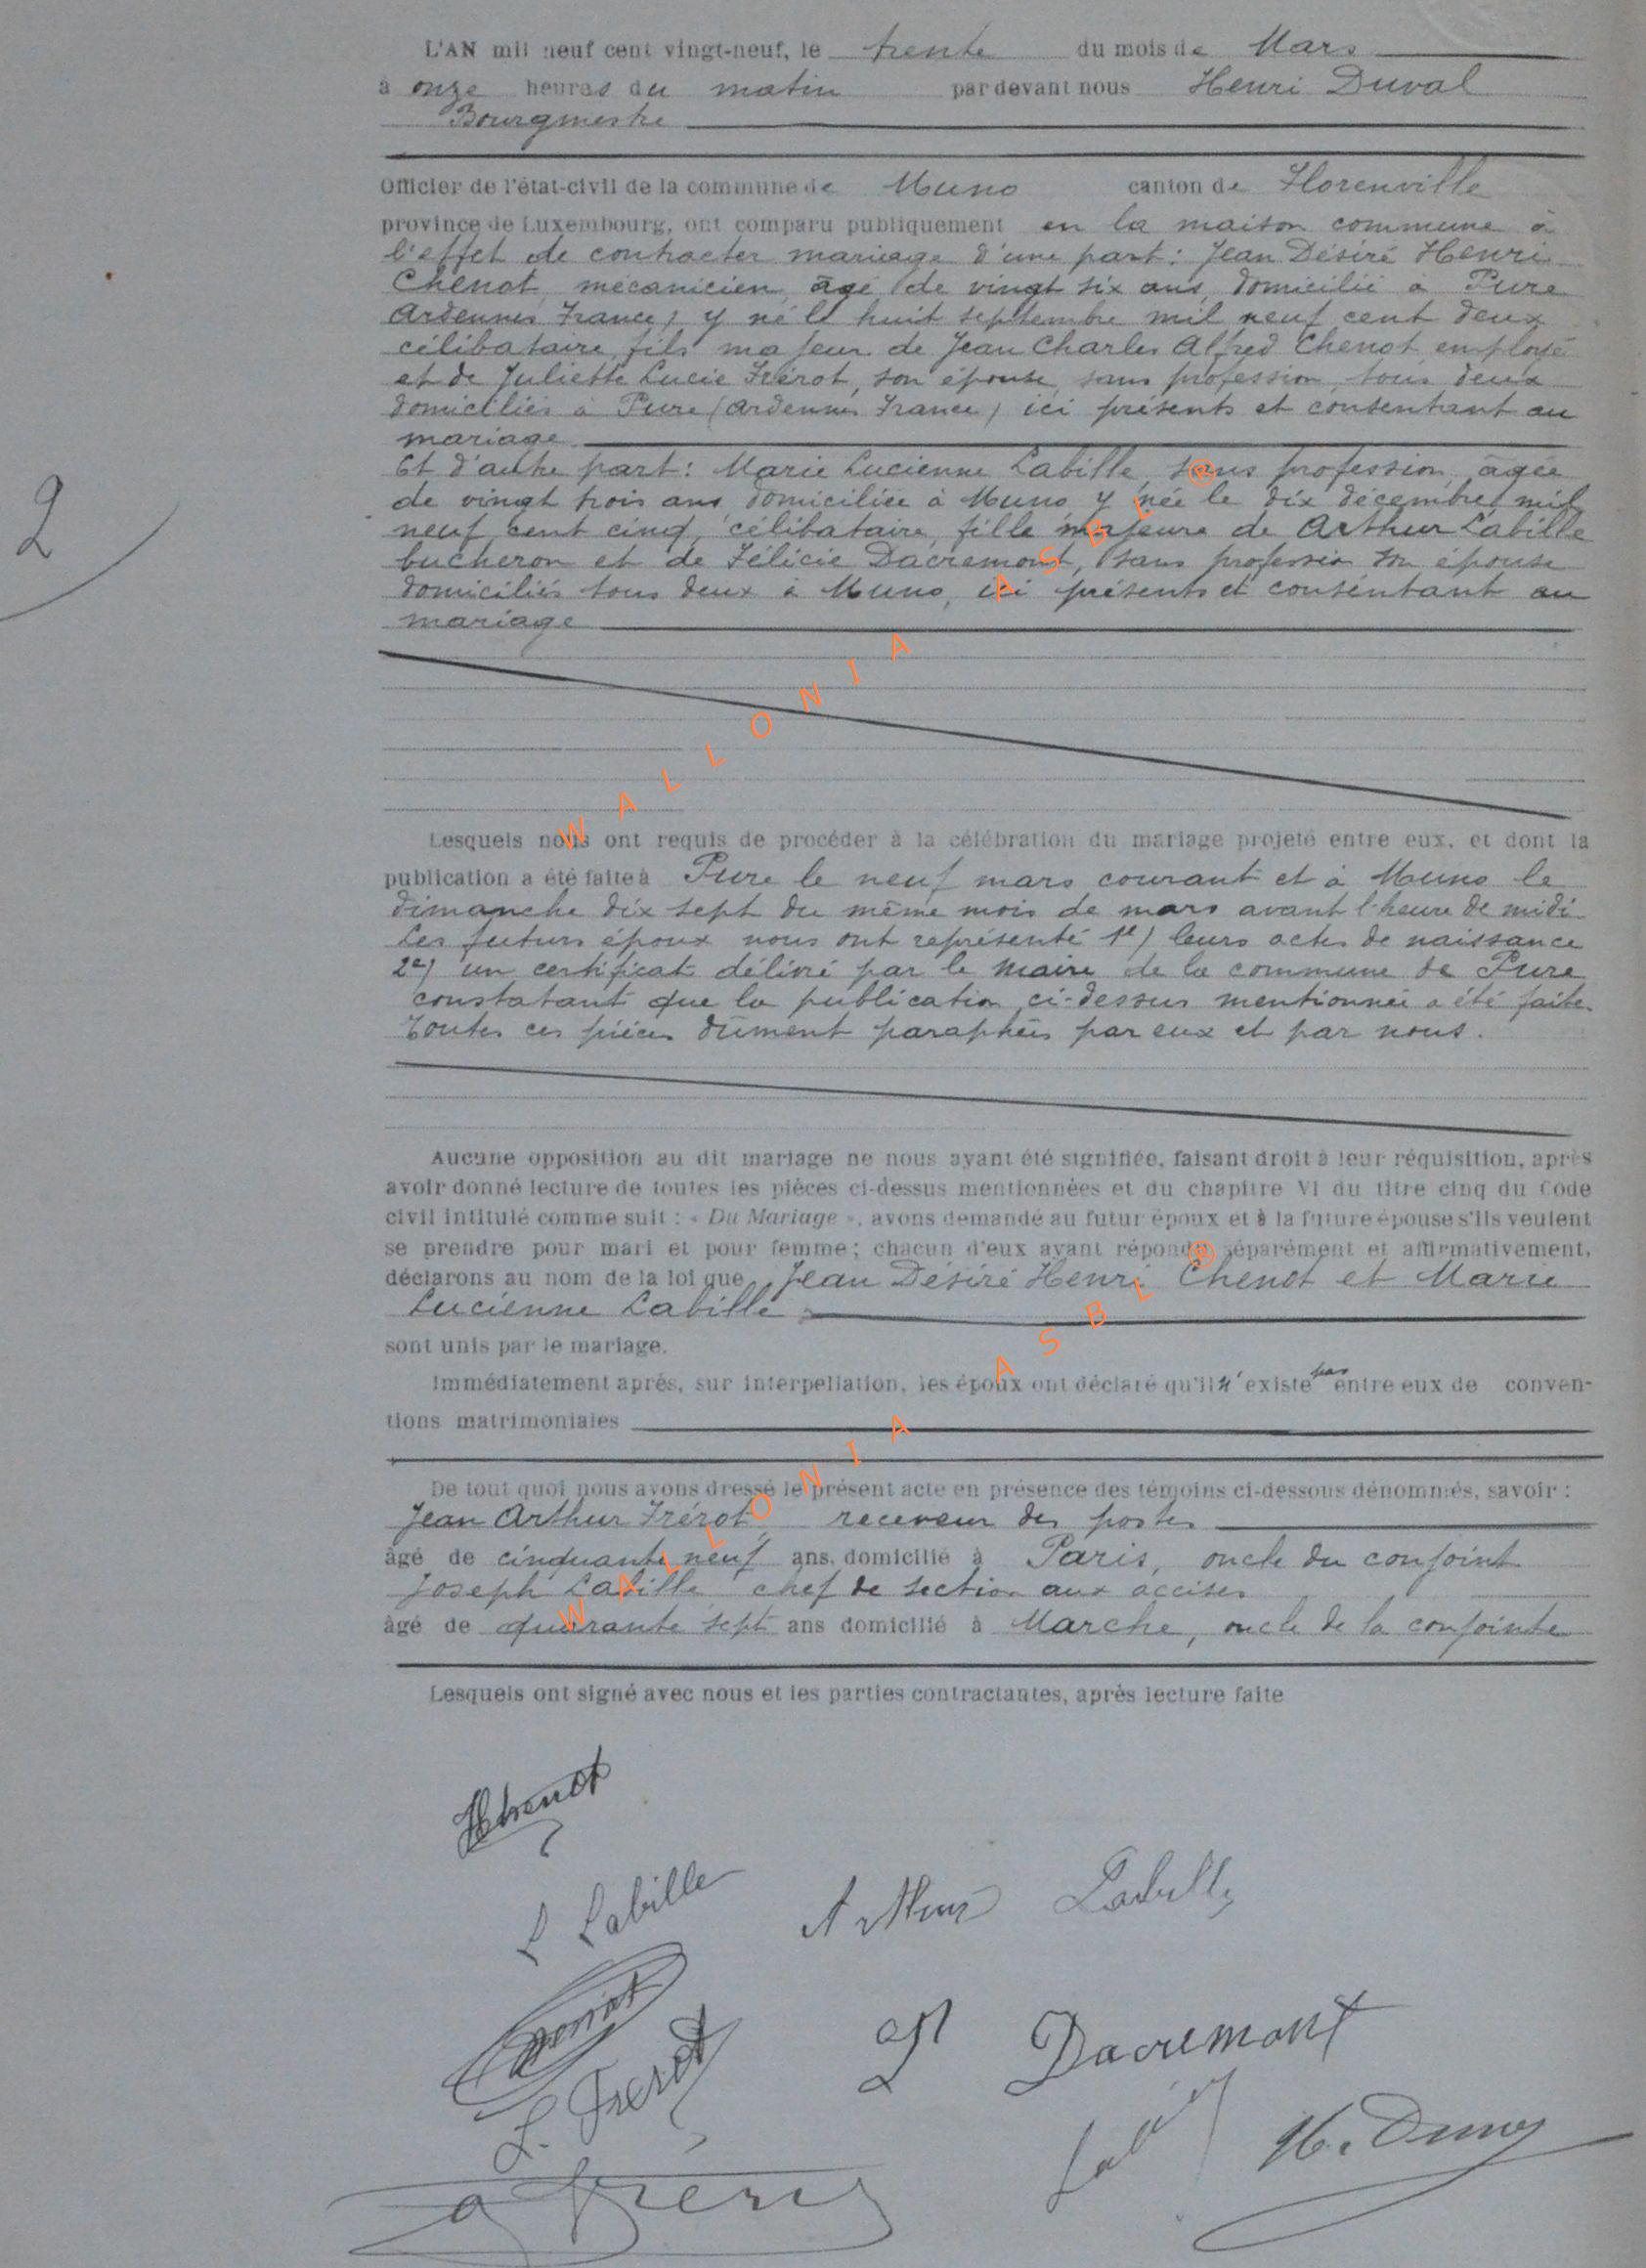 L'AN mil neuf cent vingt-neuf, le trente du mois de Mars
à onze heures du matin par devant nous Henri Duval
Bourgmestre
Officier de l'état-civil de la commune de Muno canton de Florenville
province de Luxembourg, ont comparu publiquement en la maison commune à
l'effet de contracter mariage d'une part : Jean Désiré Henri
Chenot, mécanicien, âgé de vingt six ans, domicilié à Pure
Ardennes France) y né le huit septembre mil neuf cent deux
célibataire, fils majeur de Jean Charles Alfred Chenot employé
et de Juliette Lucie Frérot, son épouse, sans profession, tous deux
domiciliés à Pure (Ardennes France) ici présents et consentant au
mariage.
2
Et d'autre part : Marie Lucienne Labille, sans profession, âgée
de vingt trois ans, domiciliée à Muno, y née le dix décembre mil
neuf cent cinq, célibataire, fille majeure de Arthur Labille
bucheron et de Félicie Dacremont, sans profession son épouse
domiciliés tous deux à Muno, ici présents et consentant au
mariage
WALLONIA ASBL ®
Lesquels nous ont requis de procéder à la célébration du mariage projeté entre eux, et dont la
publication a été faite à Pure le neuf mars courant et à Muno le
dimanche dix sept du même mois de mars avant l'heure de midi
Les futurs époux nous ont représenté 1e) leurs actes de naissance
2e) un certificat délivré par le Maire de la commune de Pure
constatant que la publication ci-dessus mentionnée a été faite.
Toutes ces pièces dûment paraphées par eux et par nous.
Aucune opposition au dit mariage ne nous ayant été signifiée, faisant droit à leur réquisition, après
avoir donné lecture de toutes les pièces ci-dessus mentionnées et du chapitre VI du titre cinq du Code
civil intitulé comme suit : « Du Mariage », avons demandé au futur époux et à la future épouse s'ils veulent
se prendre pour mari et pour femme ; chacun d'eux ayant répondu séparément et affirmativement,
déclarons au nom de la loi que Jean Désiré Henri Chenot et Marie
Lucienne Labille
sont unis par le mariage.
Immédiatement après, sur interpellation, les époux ont déclaré qu'il n'existe pas entre eux de conven-
tions matrimoniales
WALLONIA ASBL ®
De tout quoi nous avons dressé le présent acte en présence des témoins ci-dessous dénommés, savoir :
Jean Arthur Frérot, receveur des postes
âgé de cinquante neuf ans, domicilié à Paris, oncle du conjoint
Joseph Labille chef de section aux accises
âgé de quarante sept ans domicilié à Marche, oncle de la conjointe
Lesquels ont signé avec nous et les parties contractantes, après lecture faite
HChenot
L Labille Arthur Labille
Chenot
Dacremont
L. Frérot
H. Duval